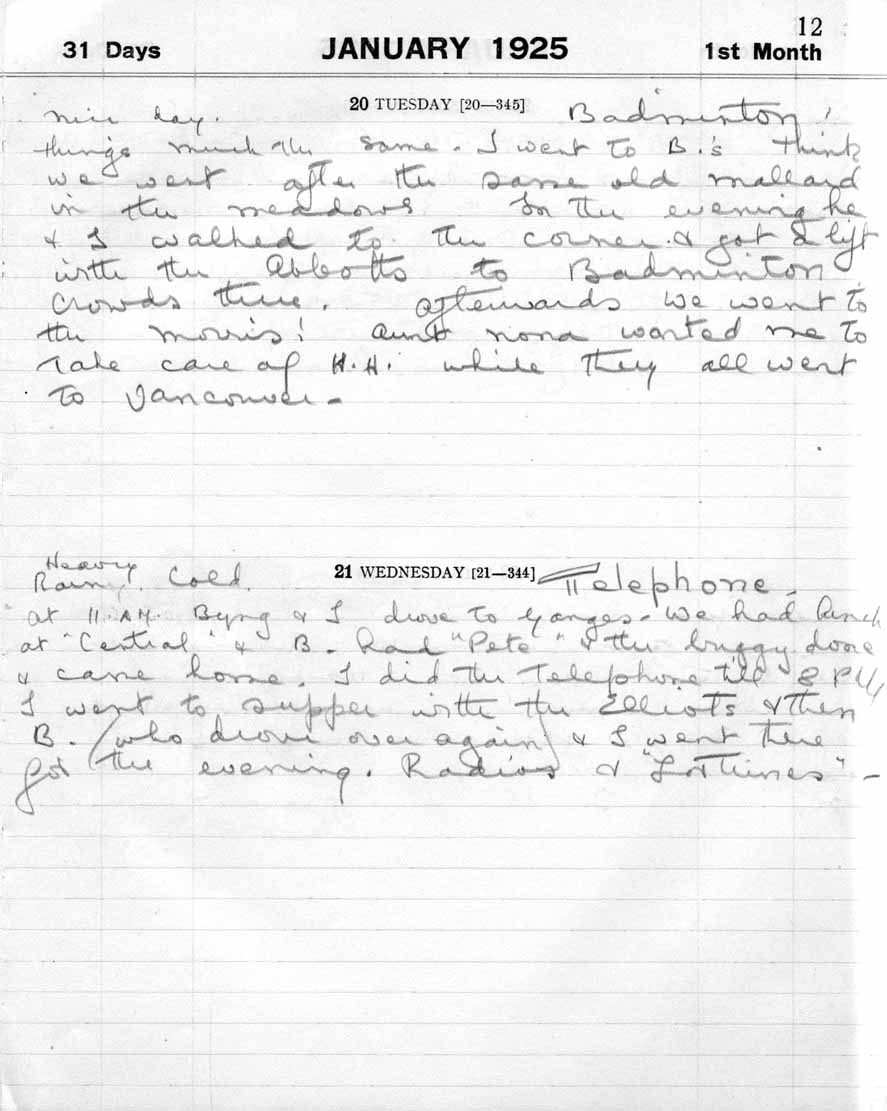 12
31 Days JANUARY 1925 1st Month
20 TUESDAY [20—345]
nice day. Badminton!
things much the same. I went to B.'s think
we went after the same old mallard
in the meadows. In the evening he
& I walked to the corner & got a lift
with the Abbotts to Badminton
Crowds there. afterwards we went to
the Morris! Aunt Nona wanted me to
take care of H.H. while they all went
to Vancouver -
21 WEDNESDAY [21—344]
Heavy
Rain. Cold. Telephone -
at 11. A.M. Byng & I drove to Ganges - We had lunch
at "Central" & B. had "Pete" & the buggy done
& came home. I did the Telephone till 8 PM
I went to supper with the Elliots & then
B. (who drove over again) & I went there
for the evening. Radios &